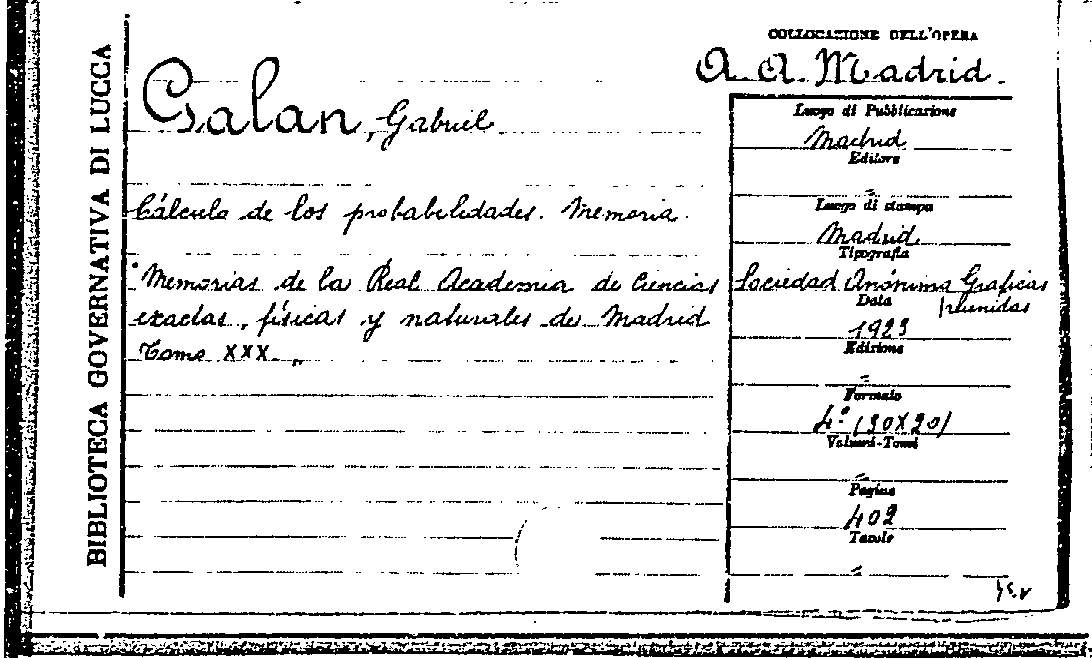 BIBLIOTECA GOVERNATIVA DI LUCCA
COLLOCAZIONE DELL'OPERA
A. A. Madrid.
Galan, Gabriel
Cálculo de los probabilidades. Memoria.
"Memorias de la Real Academia de Ciencias
exactas, físicas y naturales de Madrid
Tomo XXX „
Luogo di Pubblicazione
Madrid
Editore
Luogo di stampa
Madrid
Tipografia
Sociedad Anónima Graficas
reunidas
Data
1923
Edizione
Formato
4° (30X20)
Volumi-Tomi
Pagine
402
Tavole